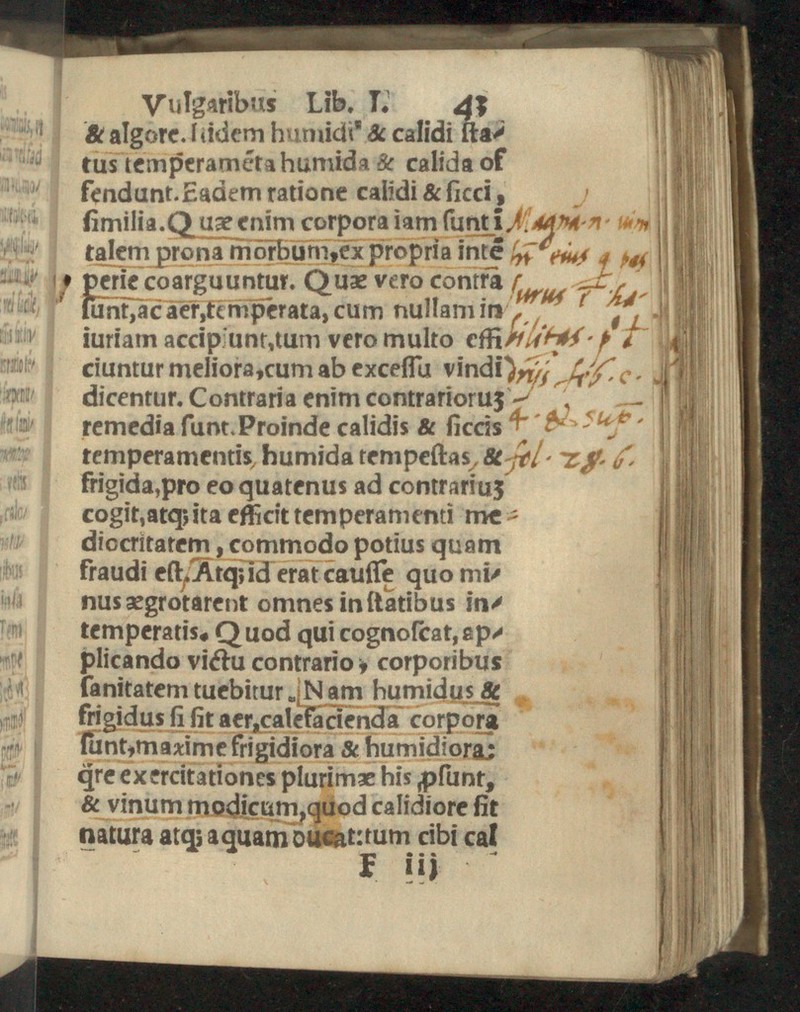 Vulgaribus Lib. I. 43
& algore. Iidem humidi & calidi ſta⸗
tus temperamēta humida & calida of
fendunt. Eadem ratione calidi & ſicci,
ſimilia. Quæ enim corpora iam ſunt ī
talem prona morbum, ex propria intē
perie coarguuntur. Quæ vero contra
ſunt, ac aer, temperata, cum nullam in
iuriam accipiunt, tum vero multo effi
ciuntur meliora, cum ab exceſſu vindi
dicentur. Contraria enim contrarioruʒ
remedia ſunt. Proinde calidis & ſiccis
temperamentis, humida tempeſtas, &
frigida, pro eo quatenus ad contrariuʒ
cogit, atqꝫ ita efficit temperamenti me⸗
diocritatem, commodo potius quam
fraudi eſt, Atqꝫ id erat cauſſe quo mi⸗
nus ægrotarent omnes in ſtatibus in⸗
temperatis. Quod qui cognoſcat, ap⸗
plicando victu contrario, corporibus
ſanitatem tuebitur. Nam humidus &
frigidus ſi ſit aer, calefacienda corpora
ſunt, maxime frigidiora & humidiora:
q̄re exercitationes plurimæ his ꝓſunt,
& vinum modicum, quod calidiore ſit
natura atqꝫ aquam oucat: tum cibi cal
F iij